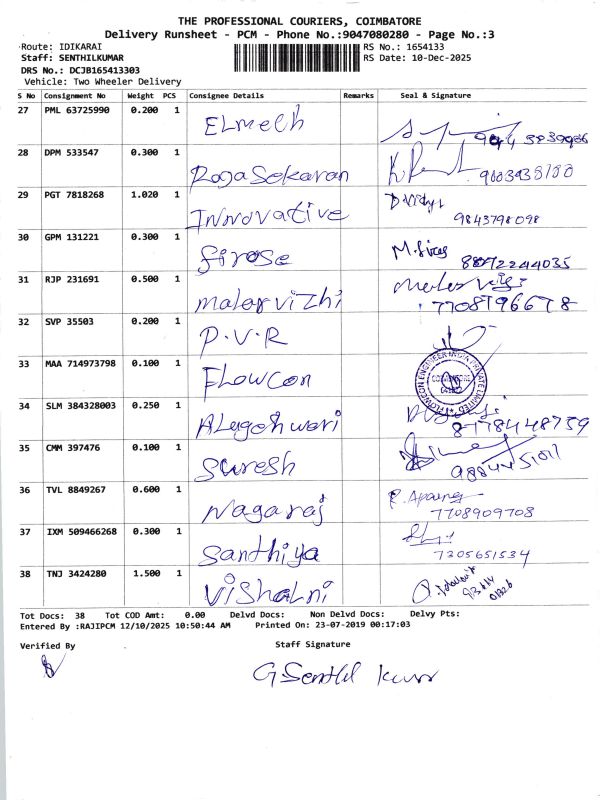 THE PROFESSIONAL COURIERS, COIMBATORE
Delivery Runsheet - PCM - Phone No.:9047080280 - Page No.:3
Route: IDIKARAI RS No.: 1654133
Staff: SENTHILKUMAR RS Date: 10-Dec-2025
DRS No.: DCJB165413303
Vehicle: Two Wheeler Delivery
S No Consignment No Weight PCS Consignee Details Remarks Seal & Signature
27 PML 63725990 0.200 1 ELmech
28 DPM 533547 0.300 1 RajaSekaran
29 PGT 7818268 1.020 1 Innovative D.Vidya
9843798098
30 GPM 131221 0.300 1 firose M.firos 8892244035
31 RJP 231691 0.500 1 malarvizhi
7708796678
32 SVP 35503 0.200 1 P.V.R
33 MAA 714973798 0.100 1 FLowcon FLOWCON ENGINEER INDIA PRIVATE LIMITED
34 SLM 384328003 0.250 1 ALageshwari 8778448759
35 CMM 397476 0.100 1 Suresh
36 TVL 8849267 0.600 1 Nagaraj
7708909708
37 IXM 509466268 0.300 1 Santhiya
7305651534
38 TNJ 3424280 1.500 1 VishaLni
Tot Docs: 38 Tot COD Amt: 0.00 Delvd Docs: Non Delvd Docs: Delvy Pts:
Entered By :RAJIPCM 12/10/2025 10:50:44 AM Printed On: 23-07-2019 00:17:03
Verified By Staff Signature
G Senthil kumar